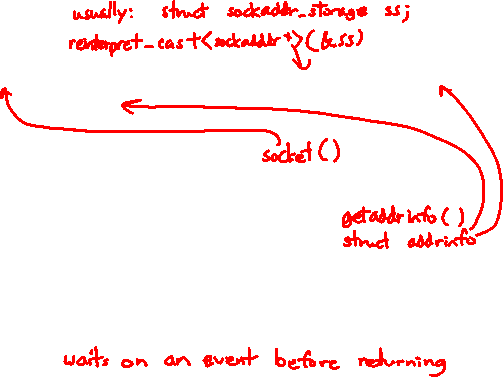 usually: struct sockaddr_storage ss;
reinterpret_cast<sockaddr*>(&ss)
socket()
getaddrinfo()
struct addrinfo
waits on an event before returning